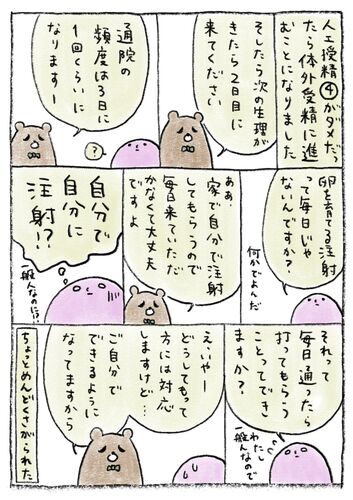 人工授精④がダメだっ
たら体外受精に進
むことになりました
そしたら次の生理が
きたら2日目に
来てください
通院の
頻度は3日に
1回くらいに
なりますー
?
卵を育てる注射
って毎日じゃ
ないんですか?
何かでよんだ
ああ、
家で自分で注射
してもらうので
毎日来ていただ
かなくて大丈夫
ですよ
自分で
自分に
注射!?
一般人なのに!?
それって
毎日通ったら
打ってもらう
ことってでき
ますか?
わたし
一般人なので
え、いやー
どうしてもって
方には対応
しますけど…
ご自分で
できるように
なってますから
ちょっとめんどくさがられた